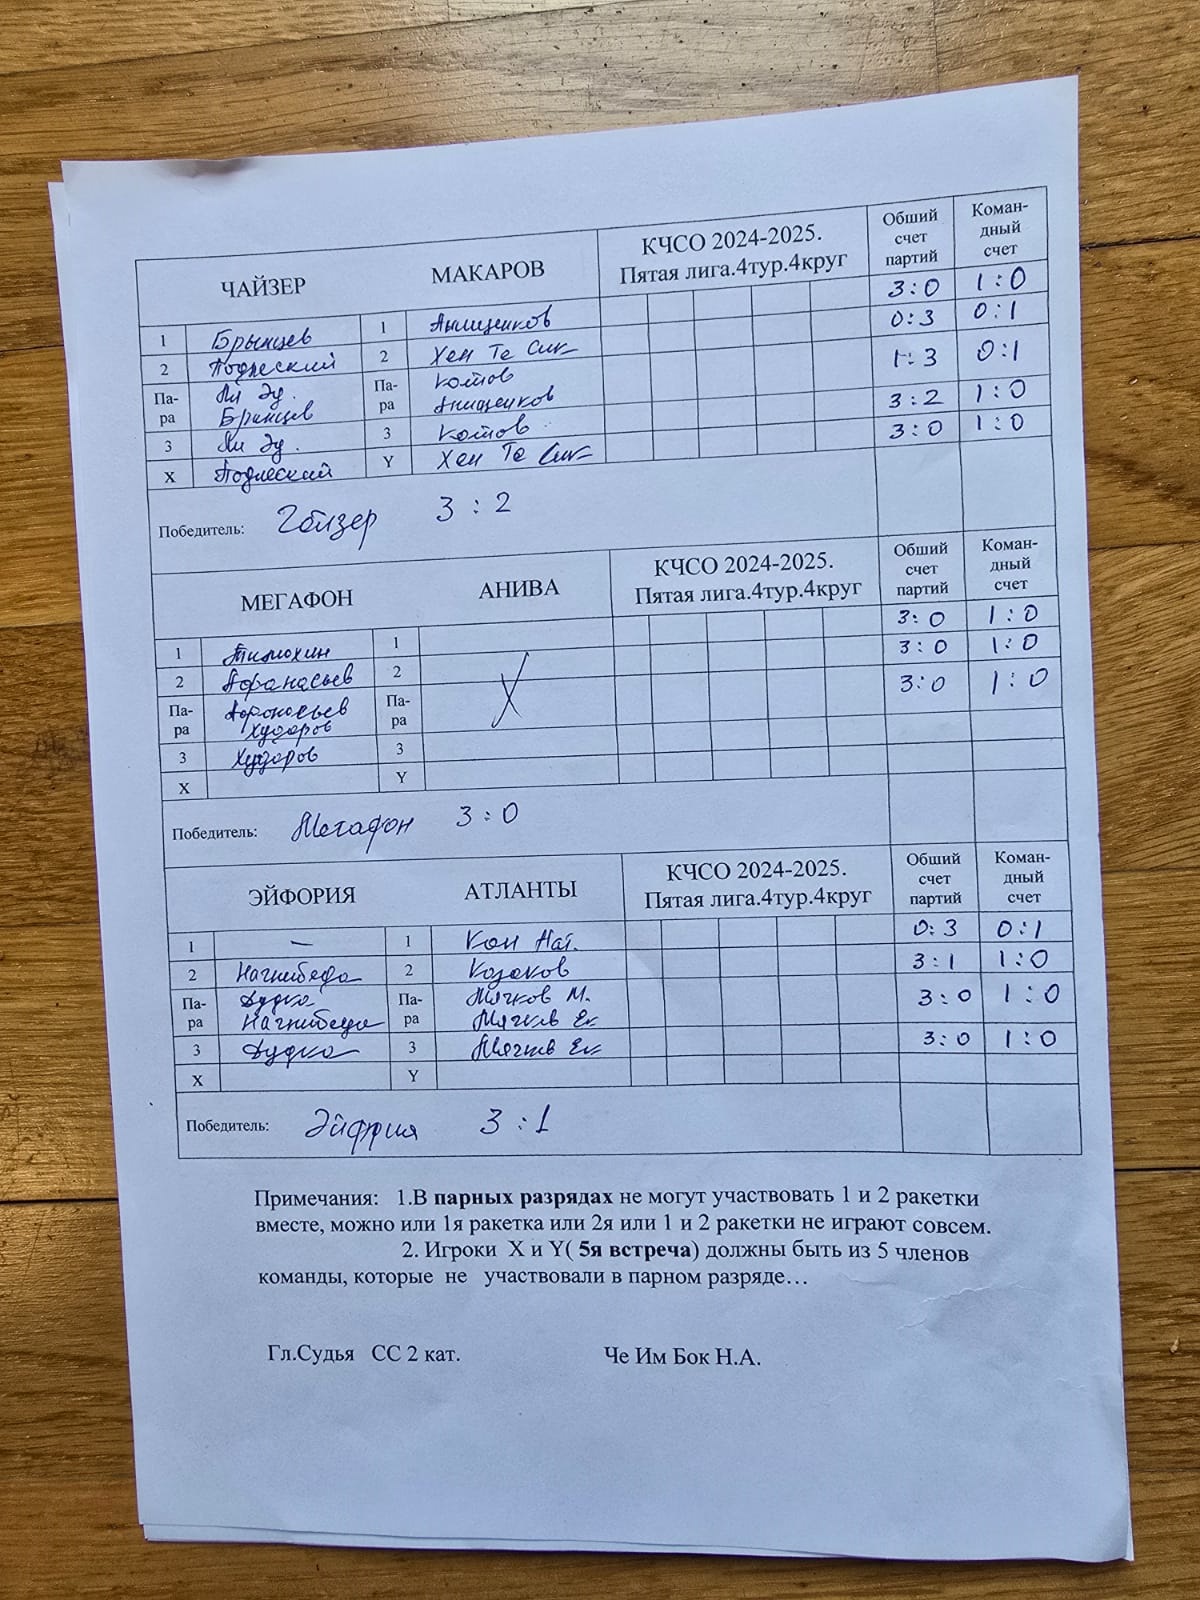 ЧАЙЗЕР МАКАРОВ КЧСО 2024-2025. Пятая лига.4тур.4круг Обший счет партий Коман-дный счет
3:0 1:0
1 Брынцев 1 Анищенков 0:3 0:1
2 Подлеский 2 Хен Те Сик 1:3 0:1
Па-ра Ли Эд. Брынцев Па-ра Котов Анищенков 3:2 1:0
3 Ли Эд. 3 Котов 3:0 1:0
X Подлеский Y Хен Те Сик
Победитель: 3 : 2
МЕГАФОН АНИВА КЧСО 2024-2025. Пятая лига.4тур.4круг Обший счет партий Коман-дный счет
3:0 1:0
1 Тимохин 1 3:0 1:0
2 Афанасьев 2 3:0 1:0
Па-ра Афанасьев Худоров Па-ра X
3 Худоров 3
X Y
Победитель: Мегафон 3 : 0
ЭЙФОРИЯ АТЛАНТЫ КЧСО 2024-2025. Пятая лига.4тур.4круг Обший счет партий Коман-дный счет
1 — 1 Кон Нат. 0:3 0:1
2 Нагнибеда 2 Казаков 3:1 1:0
Па-ра Дудко Нагнибеда Па-ра Мячков М. Мячков Ек 3:0 1:0
3 Дудко 3 Мячков Ек 3:0 1:0
X Y
Победитель: Эйфория 3 : 1
Примечания: 1.В парных разрядах не могут участвовать 1 и 2 ракетки
вместе, можно или 1я ракетка или 2я или 1 и 2 ракетки не играют совсем.
2. Игроки X и Y( 5я встреча) должны быть из 5 членов
команды, которые не участвовали в парном разряде…
Гл.Судья СС 2 кат. Че Им Бок Н.А.